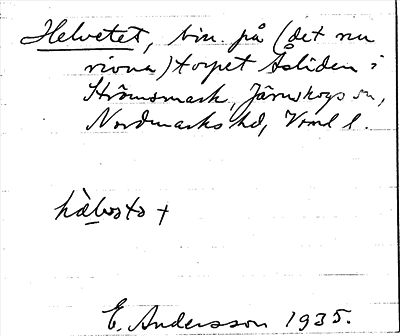 Helvetet, bin. på (det nu
rivna) torpet Åsliden i
Strömsmark, Järnskogs sn,
Nordmarks hd, Vrml l.
E. Andersson 1935.